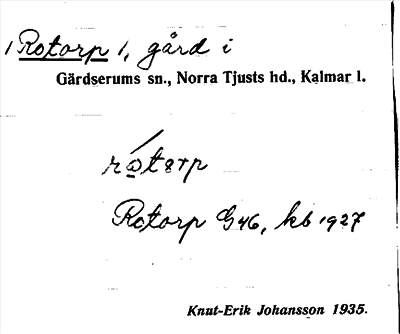 /Rotorp 1, gård i
Gärdserums sn., Norra Tjusts hd., Kalmar l.
Rotorp G46, kb 1927
Knut-Erik Johansson 1935.